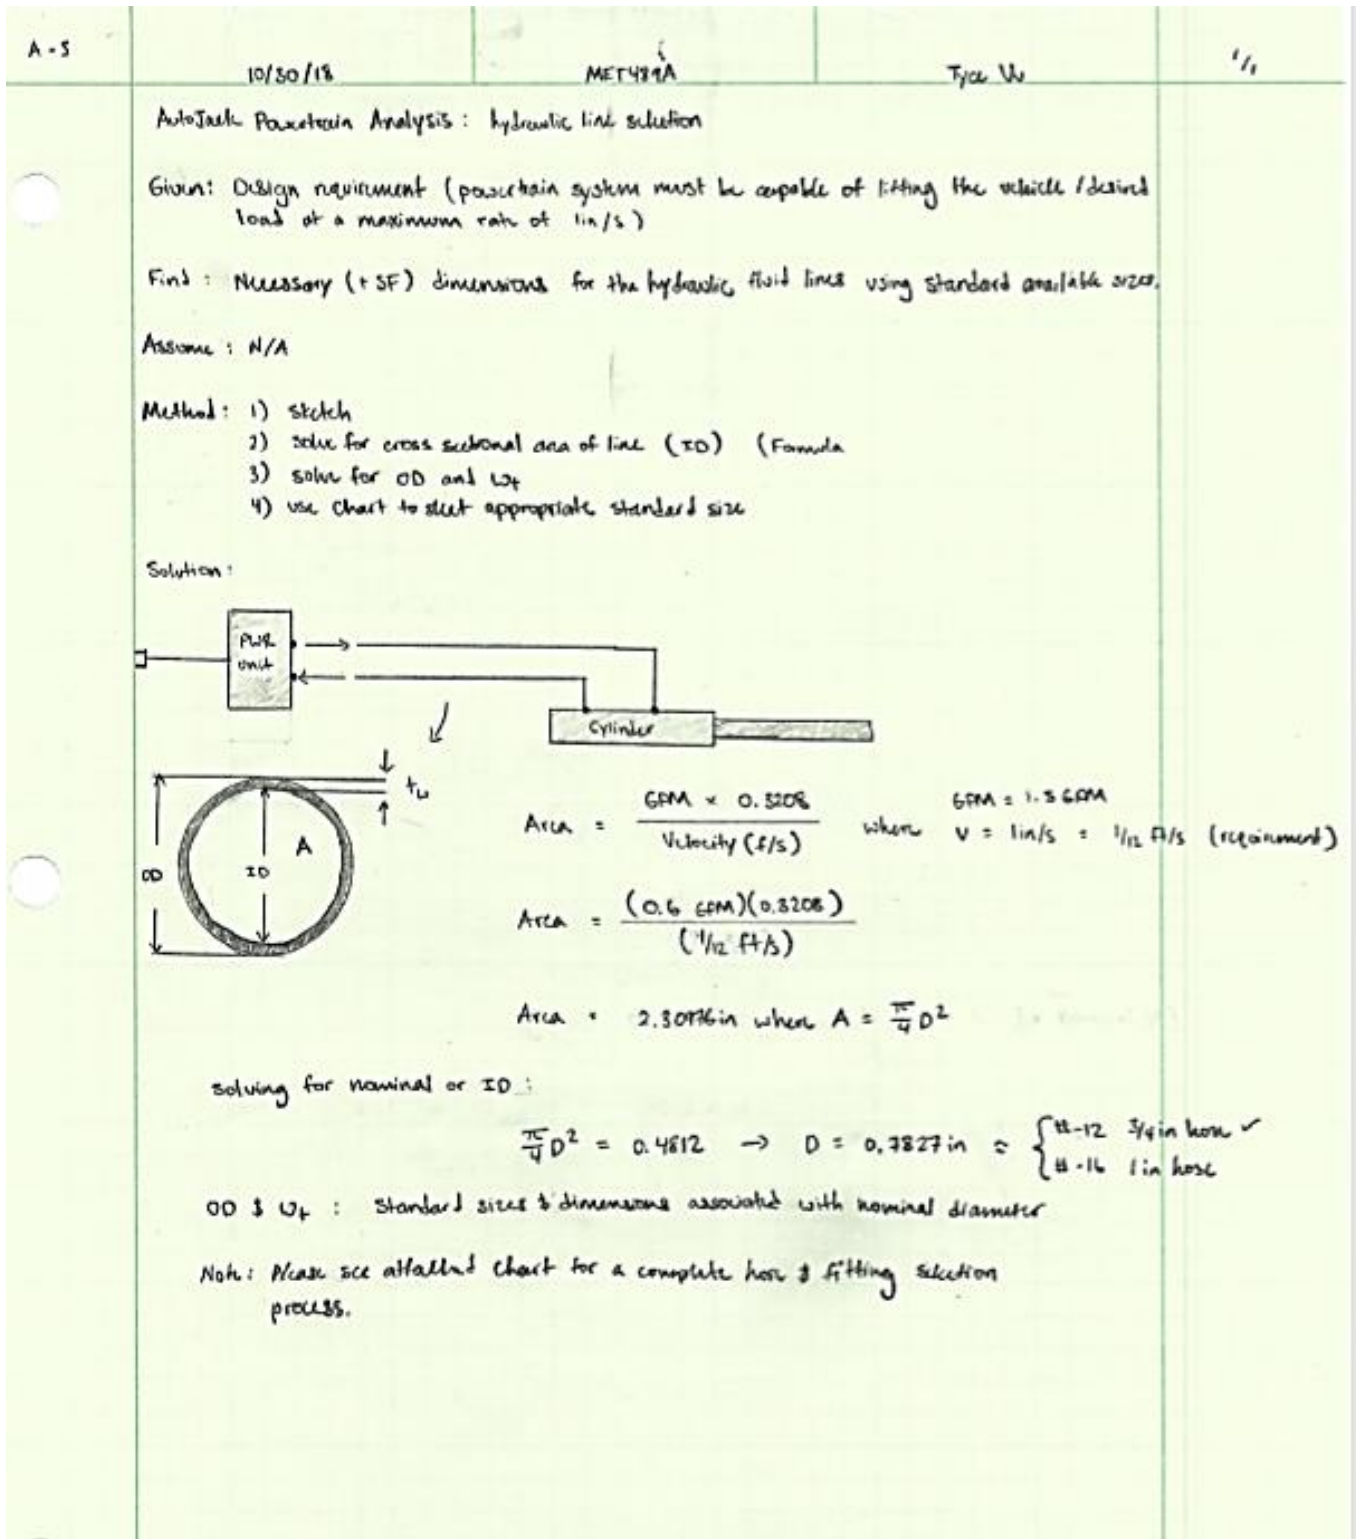 A-5
10/30/18 MET489A Tyce 1/1
AutoJack Powertrain Analysis: hydraulic line selection
Given: Design requirement (powertrain system must be capable of lifting the vehicle / desired
load at a maximum rate of 1in/s)
Find: Necessary (+ SF) dimensions for the hydraulic fluid lines using standard available sizes.
Assume: N/A
Method: 1) sketch
2) solve for cross sectional area of line (ID) (Formula
3) solve for OD and Wt
4) use chart to slect appropriate standard size
Solution:
PWR
unit
Cylinder
tw
OD
ID
A
Area = GPM × 0.3208 / Velocity (f/s) where GPM = 1.5 GPM
V = 1in/s = 1/12 ft/s (requirement)
Area = (0.6 GPM)(0.3208) / (1/12 ft/s)
Area = 2.30976in where A = π/4 D²
solving for nominal or ID:
π/4 D² = 0.4812 → D = 0.7827in ≈ { #-12 3/4in hose ✓
#-16 1in hose
OD & Wt : Standard sizes & dimensions associated with nominal diameter
Note: Please see attached chart for a complete hose & fitting selection
process.